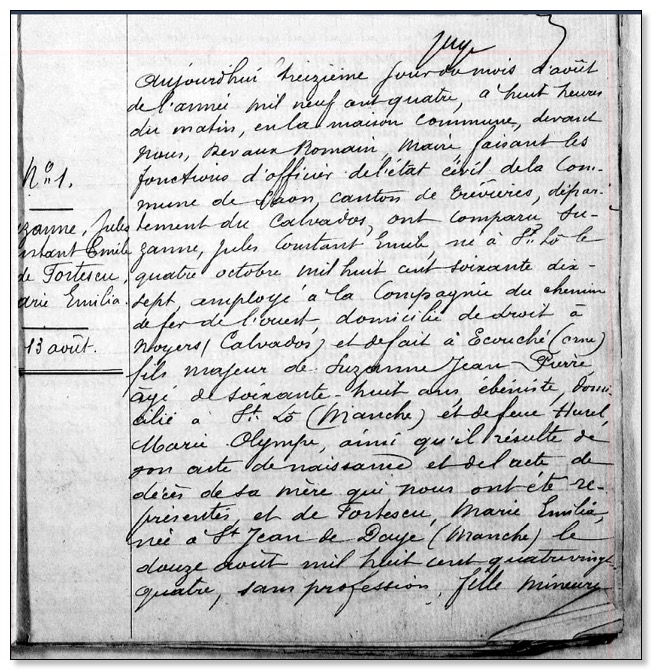 Aujourd'hui treizième jour du mois d'août
de l'année mil neuf cent quatre, à huit heures
du matin, en la maison commune, devant
nous, Devaux Romain Maire faisant les
fonctions d'officier de l'état civil de la Com-
mune de canton de Trévières, dépar-
tement du Calvados, ont comparu Su-
zanne, Jules Constant Emile, né à St Lô le
quatre octobre mil huit cent soixante dix-
sept employé à la Compagnie du chemin
de fer de l'ouest domicilié de droit à
Noyers (Calvados) et de fait à Ecouché (orne)
fils majeur de Suzanne Jean Pierre
agé de soixante-huit ans ébéniste domi-
cilié à St Lô (Manche) et de feue Hurel
Marie Olympe, ainsi qu'il résulte de
son acte de naissance et de l'acte de
décès de sa mère qui nous ont été re-
présentés, et de Fortescu, Marie Emilia,
née à St Jean de Daye (Manche) le
douze août mil huit cent quatre vingt-
quatre, sans profession, fille mineure
No 1.
zanne, Jules
nstant Emile
de Fortescu,
arie Emilia.
13 août.